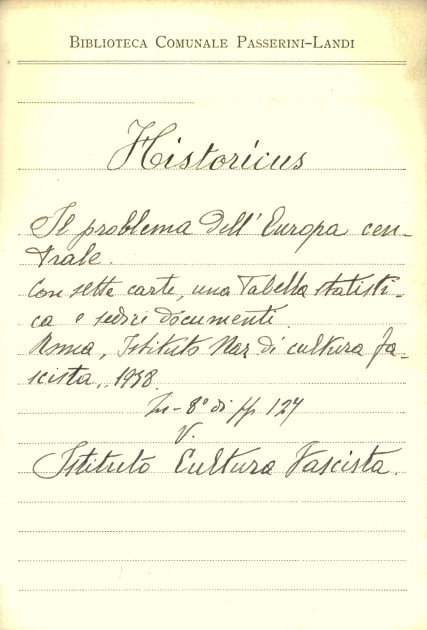 BIBLIOTECA COMUNALE PASSERINI-LANDI
Historicus
Il problema dell'Europa cen-
trale.
Con sette carte, una Tabella statisti-
ca e sedici documenti.
Roma, Istituto Naz di cultura fa-
scista, 1938.
In-8° di pp 127
V.
Istituto Cultura Fascista.